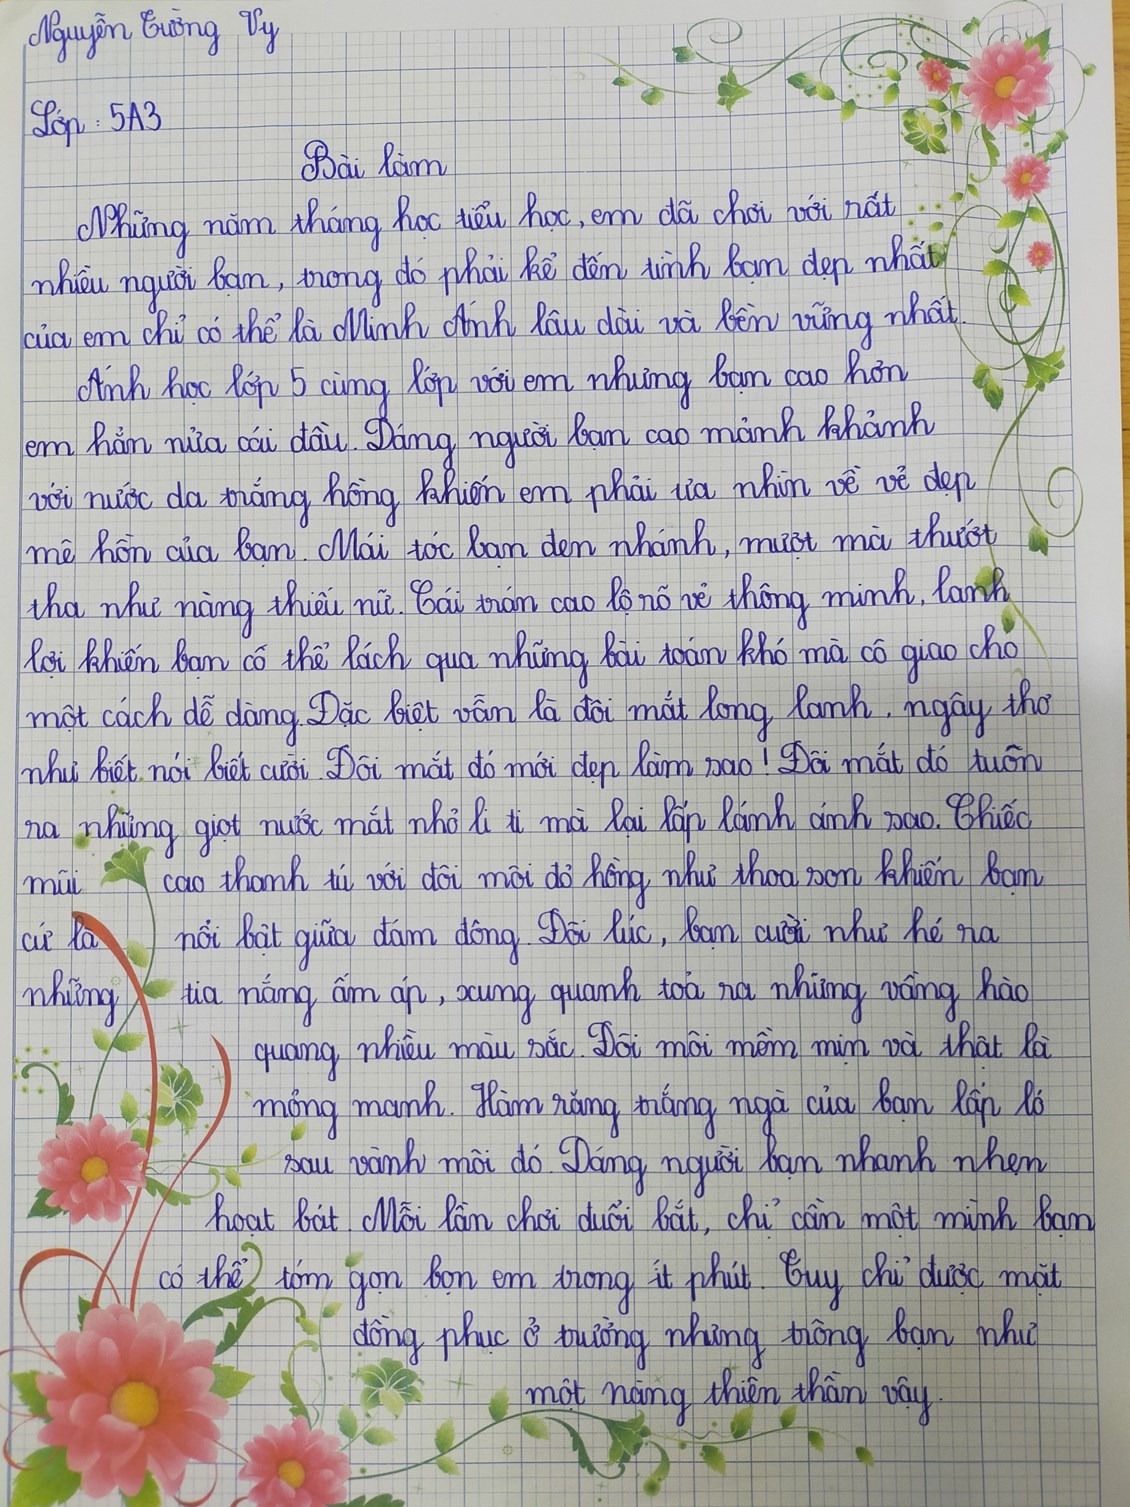 Nguyễn Tường Vy
Lớp: 5A3
Bài làm
Những năm tháng học tiểu học, em đã chơi với rất
nhiều người bạn, trong đó phải kể đến tình bạn đẹp nhất
của em chỉ có thể là Minh Ánh lâu dài và bền vững nhất.
Ánh học lớp 5 cùng lớp với em nhưng bạn cao hơn
em hẳn nửa cái đầu. Dáng người bạn cao mảnh khảnh
với nước da trắng hồng khiến em phải ưa nhìn về vẻ đẹp
mê hồn của bạn. Mái tóc bạn đen nhánh, mượt mà thướt
tha như nàng thiếu nữ. Cái trán cao lộ rõ vẻ thông minh, lanh
lợi khiến bạn cố thể lách qua những bài toán khó mà cô giao cho
một cách dễ dàng. Đặc biệt vẫn là đôi mắt long lanh, ngây thơ
như biết nói biết cười. Đôi mắt đó mới đẹp làm sao! Đôi mắt đó tuôn
ra những giọt nước mắt nhỏ li ti mà lại lấp lánh ánh sao. Chiếc
mũi cao thanh tú với đôi môi đỏ hồng như thoa son khiến bạn
cứ là nổi bật giữa đám đông. Đôi lúc, bạn cười như hé ra
những tia nắng ấm áp, xung quanh toả ra những vầng hào
quang nhiều màu sắc. Đôi môi mềm mịn và thật là
mỏng manh. Hàm răng trắng ngà của bạn lấp ló
sau vành môi đó. Dáng người bạn nhanh nhẹn
hoạt bát. Mỗi lần chơi đuổi bắt, chỉ cần một mình bạn
có thể tóm gọn bọn em trong ít phút. Tuy chỉ được mặt
đồng phục ở trường nhưng trông bạn như
một nàng thiên thần vậy.